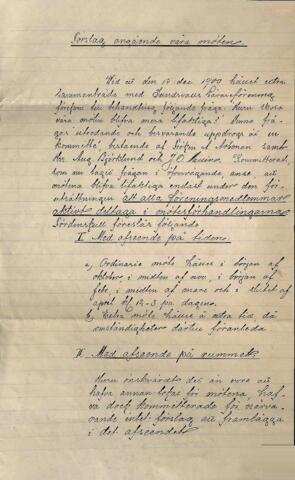 Förslag angående våra möten.
Vid ett den 10 dec. 1900 hållet extra
sammanträde med Sundsvalls Lärareförening
förefans till behandling följande fråga: Huru skola
våra möten blifva mera lifaktiga? Denna frå-
gas utredande och besvarande uppdrogs åt en
kommitté, bestående af fröken A. Boman samt
Hrr. Aug. Björklund och J. O. Kommitterade,
som nu tagit frågan i öfvervägande, anse att
mötena blifva lifaktiga endast under den för-
utsättningen att alla föreningsmedlemmar
aktivt deltaga i mötesförhandlingarna
föreslår följande
I. Med afseende på tiden.
a, Ordinarie möte hålles i början af
oktober, i midten af nov., i början af
febr., i midten af mars och i slutet af
april kl. 12-3 på dagen.
b, Extra möte hålles å extra tid, då
omständigheter därtill föranleda.
II. Med afseende på rummet.
Huru önskvärdt det än vore att
hafva annan lokal för mötena, haf-
va dock kommitterade för närva-
rande intet förslag att framlägga
i det afseendet.